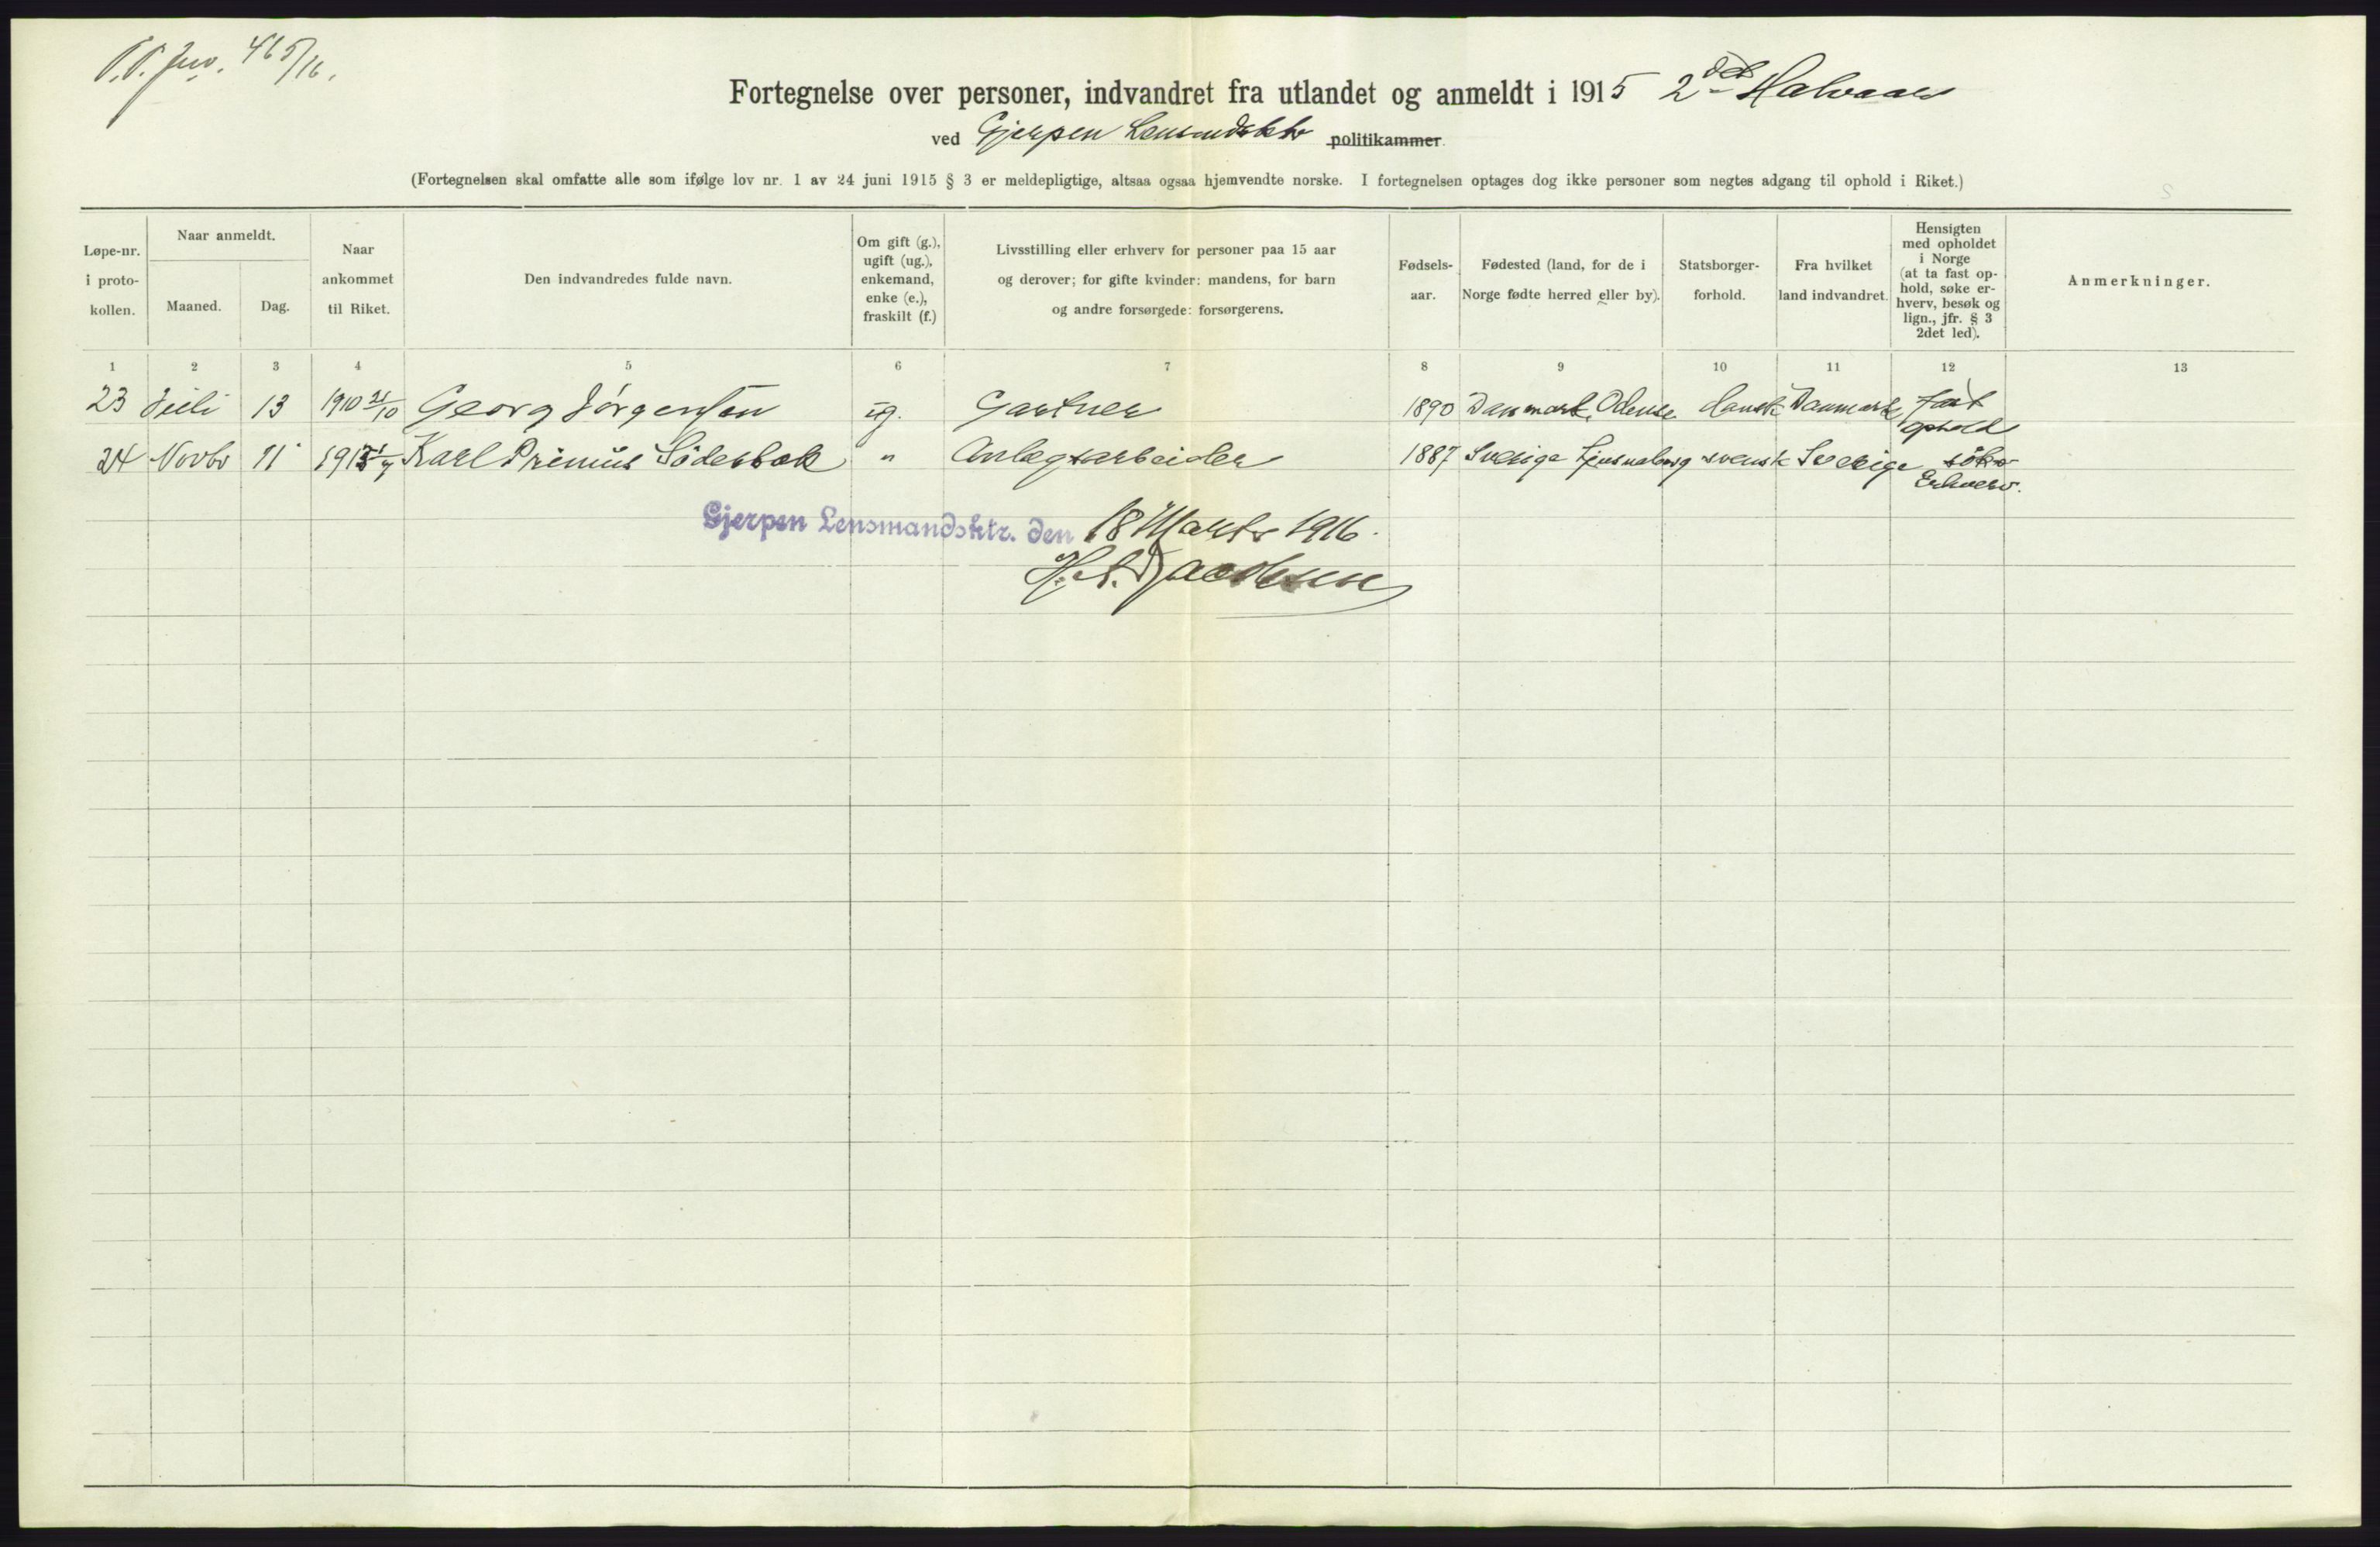 465/16.
Fortegnelse over personer, indvandret fra utlandet og anmeldt i 1915 2det Halvaar
ved Gjerpen Lensmdsktr politikammer.
(Fortegnelsen skal omfatte alle som ifølge lov nr. 1 av 24 juni 1915 § 3 er meldepligtige, altsaa ogsaa hjemvendte norske. I fortegnelsen optages dog ikke personer som negtes adgang til ophold i Riket.)
Løpe-nr. i proto-kollen.
Naar anmeldt.
Maaned.
Dag.
Naar ankommet til Riket.
Den indvandredes fulde navn.
Om gift (g.), ugift (ug.), enkemand, enke (e.), fraskilt (f.)
Livsstilling eller erhverv for personer paa 15 aar og derover; for gifte kvinder: mandens, for barn og andre forsørgede: forsørgerens.
Fødsels-aar.
Fødested (land, for de i Norge fødte herred eller by).
Statsborger-forhold.
Fra hvilket land indvandret.
Hensigten med opholdet i Norge (at ta fast op-hold, søke er-hverv, besøk og lign., jfr. § 3 2det led).
Anmerkninger.
1 2 3 4 5 6 7 8 9 10 11 12 13
23 Juli 13 1910 21/10 Georg Jörgensen ug. Gartner 1890 Danmark, Odense dansk Danmark fast ophold
24 Novbr 11 Karl Primus Söderbak " Anlægsarbeider 1887 Sverige Ljusnaberg svensk Sverige söke Erhverv.
Gjerpen Lensmandsktr. den 18 Marts 1916.
Jacobsen